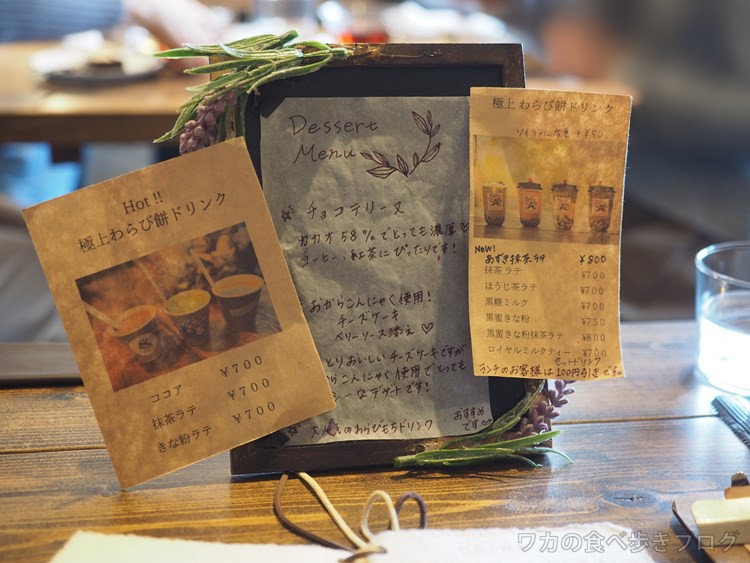 Hot !!
極上わらび餅ドリンク
ココア ¥700
抹茶ラテ ¥700
きな粉ラテ ¥700
Dessert
Menu
チョコテリーヌ
カカオ58%でとっても濃厚♡
コーヒー、紅茶にぴったりです!
おからこんにゃく使用!
チーズケーキ
ベリーソース添え♡
とりおいしいチーズケーキですが
らこんにゃく使用でとっても
シーなデザートです!
大人気のわらびもちドリンク
おすすめ
です♡
極上わらび餅ドリンク
ソイラテに変更 +¥50
New!
あずき抹茶ラテ ¥800
抹茶ラテ ¥700
ほうじ茶ラテ ¥700
黒糖ミルク ¥700
黒蜜きな粉 ¥750
黒蜜きな粉抹茶ラテ ¥800
ロイヤルミルクティー ¥700
セットドリンク
ランチのお客様は100円引きです
ワカの食べ歩きブログ